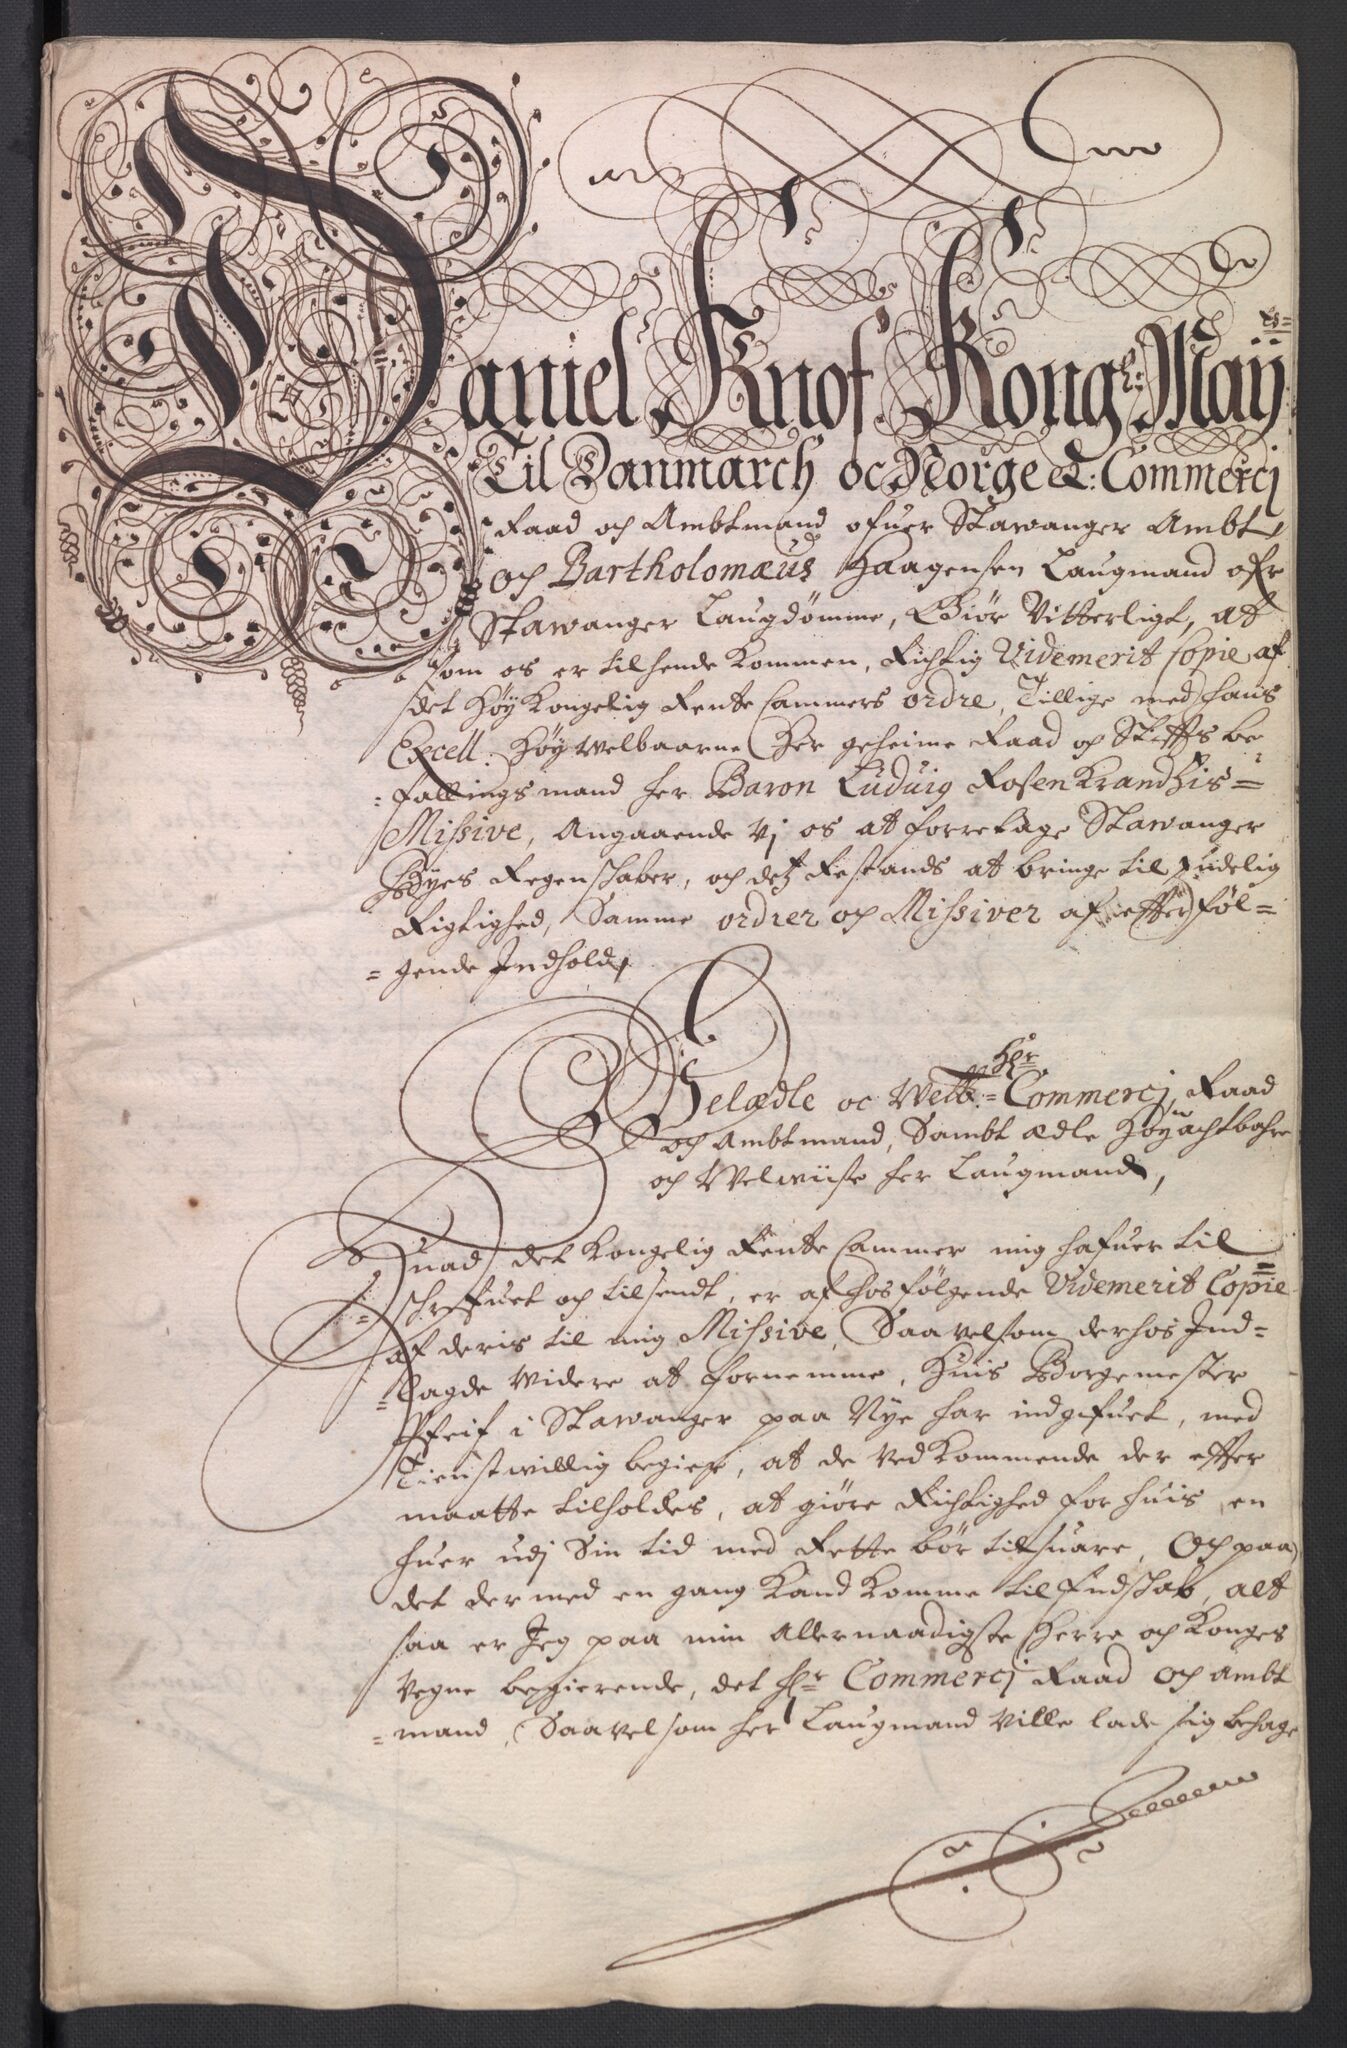 Daniel Knof. Kong: May:
Til Danmarch oc Norge et: Commercj
Raad och Ambtmand ofuer Stawanger Ambt
och Bartholomæus Haagensen Laugmand ofr
Stawanger Laugdømme, Giør Vitterligt, at
som os er tilhende Kommen, Richtig Videmerit Copie af
det Høy Kongelig Rente Cammers ordre, Tillige med hans
Excell. Høy Welbaarne Her geheime Raad og Stifts be
=fallings mand her Baron Luduig Rosen Krandtzis=
Missive, Angaaende Vj os at forretage Stawanger
Byes Regenskaber, och detz Restands at bringe til endelig
Rigtighed, Samme ordrer och Missiver af efterføl=
=gende Indhold,
Velædle oc Welb:= Hr Commercj Raad
och Ambtmand, Sambt ædle Høyachtbahre
och Welwiise her Laugmand,
Huad det Kongelig Rente Cammer mig hafuer til
=schrefuet och tilsendt, er af hosfølgende Videmerit Copie
af deris til mig Missive, Saavelsom derhos Ind=
=lagde widere at fornemme, Huis Borgemester
Pfeif i Stawanger paa Nye har indgifuet, med
Tienstwillig begier, at de ved Kommende der efter
maatte tilholdes, at giøre Richtighed for huis en
huer udj Sin tid med Rette bør tilsuare, Och paa
det der med en gang Kand Komme til Endskab, alt
saa er Jeg paa min Allernaadigste Herre och Konges
Vegne begierende, det Hr Commercj Raad och Ambt
=mand, Saavelsom her Laugmand Ville lade sig behage